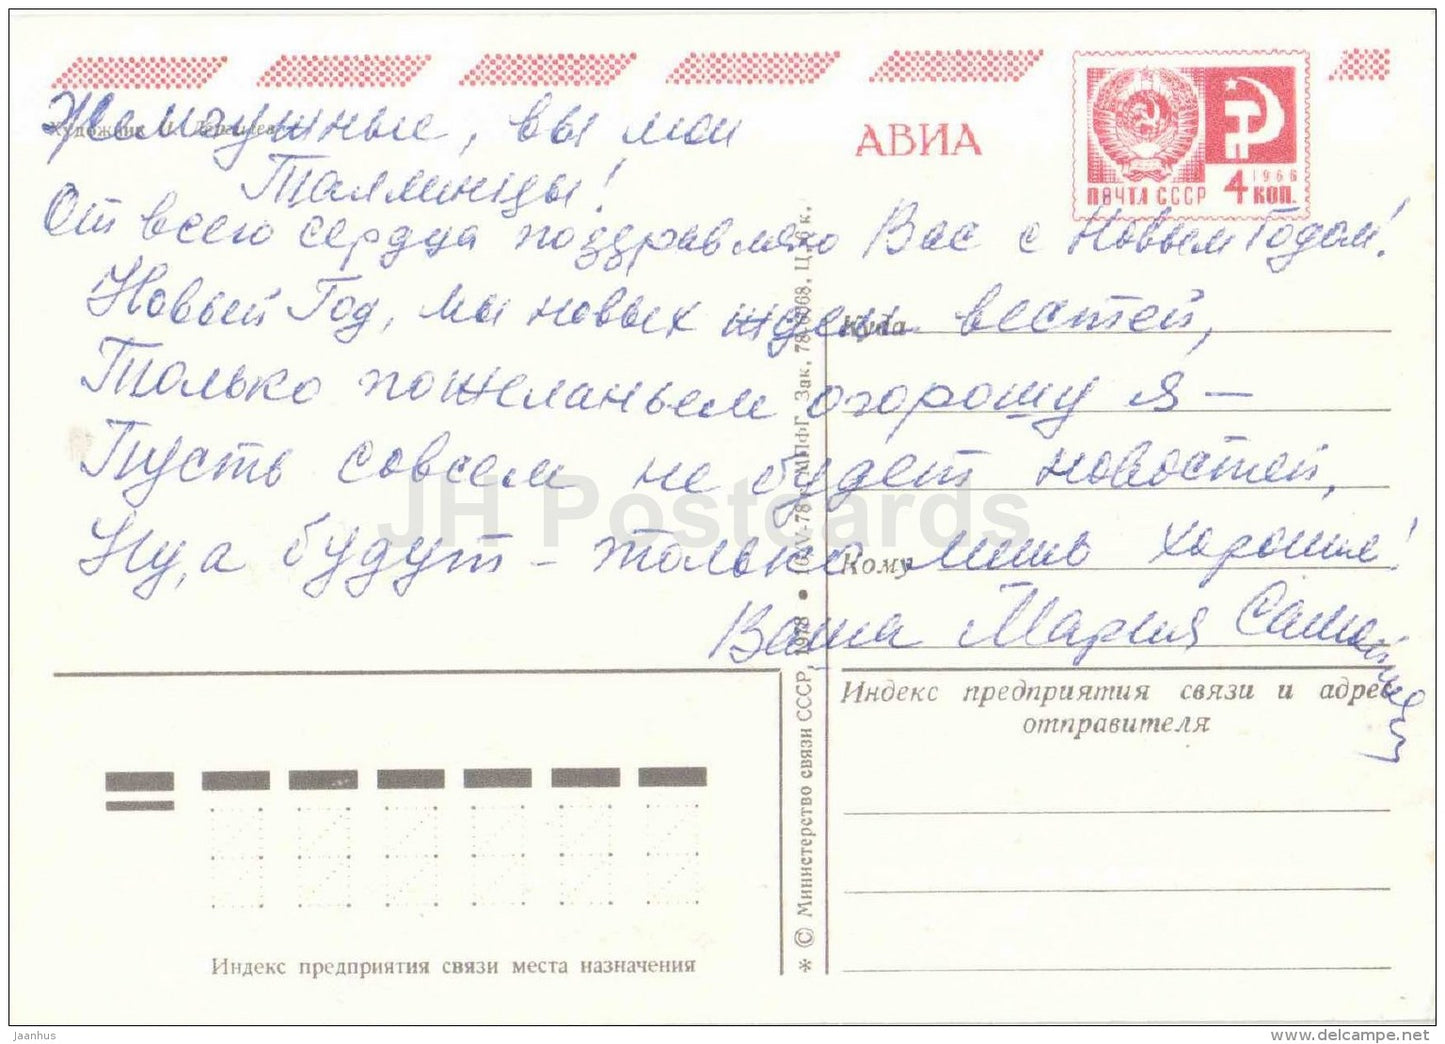 Художник
АВИА
1966
ПОЧТА СССР 4 КОП.
Жемчужные, вы мои
Таллинцы!
От всего сердца поздравляю Вас с Новым Годом!
Новый Год, мы новых ждем вестей,
Только пожеланьем огорошу я –
Пусть совсем не будет новостей,
Ну, а будут – только лишь хорошие!
Ваша Мария
Куда
Кому
Индекс предприятия связи и адрес
отправителя
* © Министерство связи СССР, 1978 •
Индекс предприятия связи места назначения
JH Postcards
jaanhus
www.delcampe.net